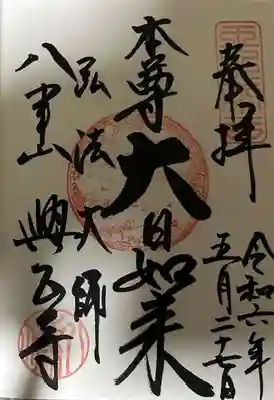 奉拝
令和六年
五月二十七日
本尊大日如来
弘法大師
八事山 興正寺